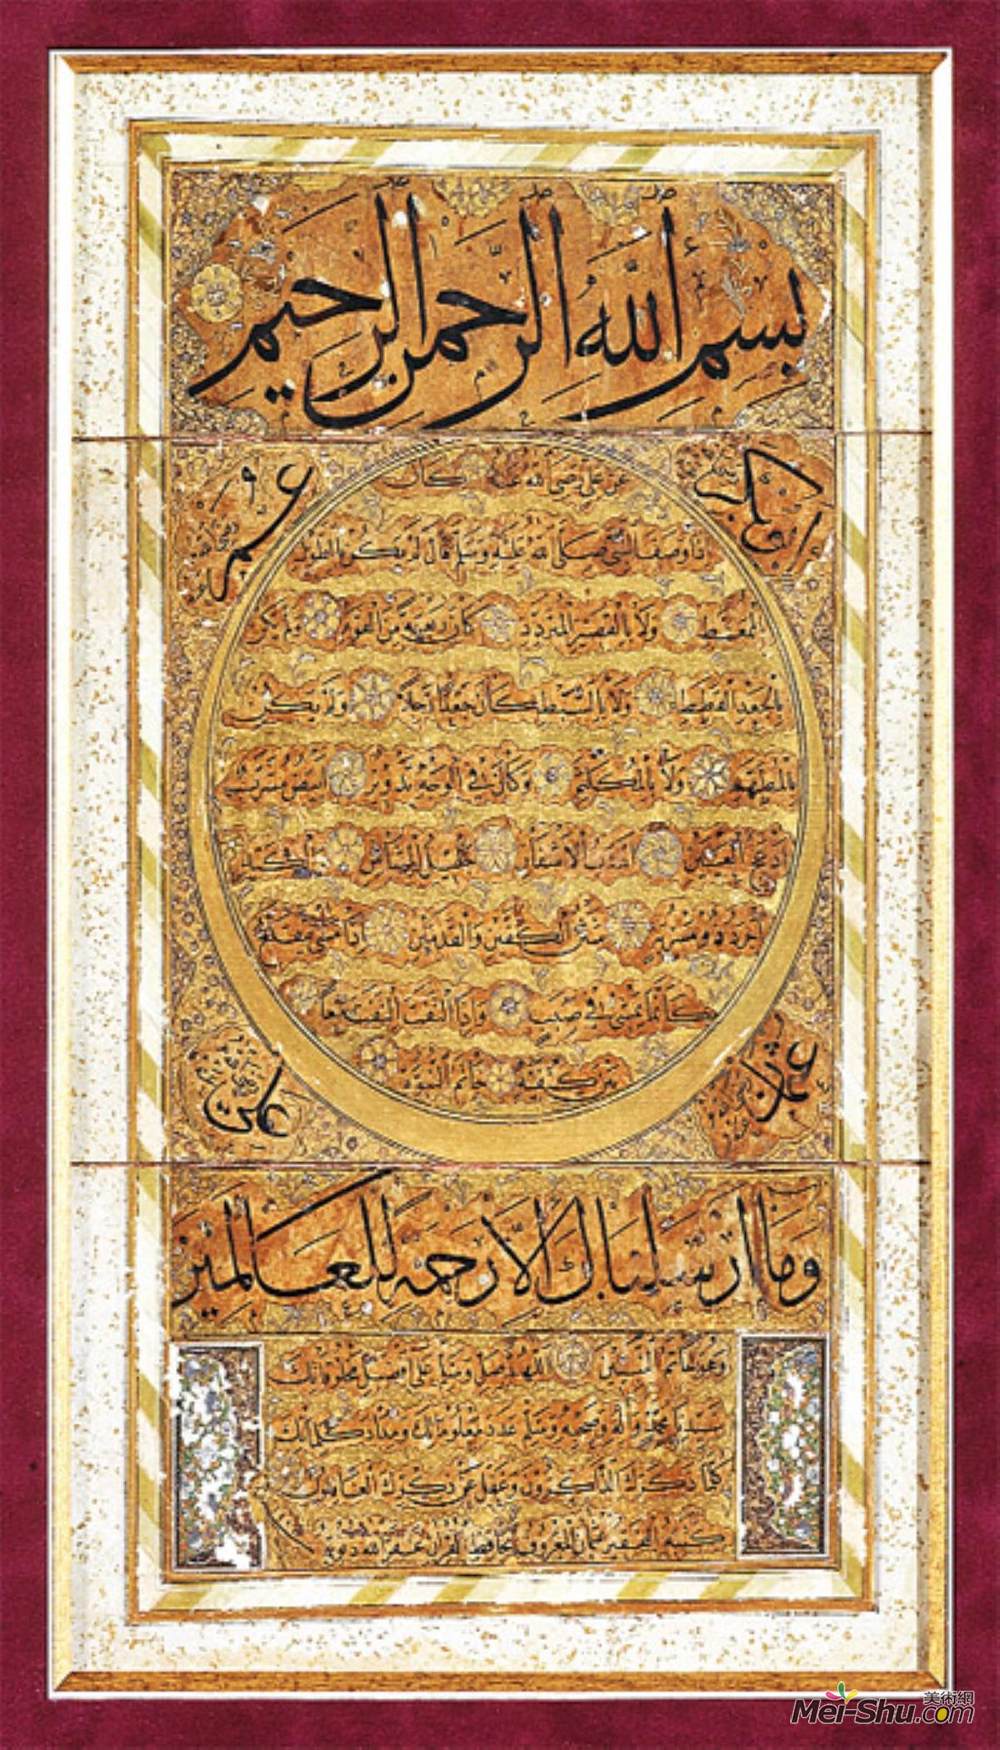 بسم الله الرحمن الرحيم
ابو بكر
عمر
عن علي رضي الله عنه كان
اذا وصف النبي صلى الله عليه وسلم قال لم يكن بالطويل
الممغط ولا بالقصير المتردد كان ربعة من القوم ولم يكن
بالجعد القطط ولا بالسبط كان جعدا رجلا ولم يكن
بالمطهم ولا بالمكلثم وكان في الوجه تدوير ابيض مشرب
ادعج العينين اهدب الاشفار جليل المشاش والكتد
اجرد ذو مسربة شثن الكفين والقدمين اذا مشى تقلع
كانما يمشي في صبب واذا التفت التفت معا
بين كتفيه خاتم النبوة
عثمان
علي
وما ارسلناك الا رحمة للعالمين
وهو خاتم النبيين اللهم صل وسلم على افضل مخلوقاتك
سيدنا محمد وآله وصحبه وسلم عدد معلوماتك ومداد كلماتك
كلما ذكرك الذاكرون وغفل عن ذكرك الغافلون
كتبه الفقير عثمان المعروف بحافظ القرآن غفر الله ذنوبه
美術網
Mei-Shu.com